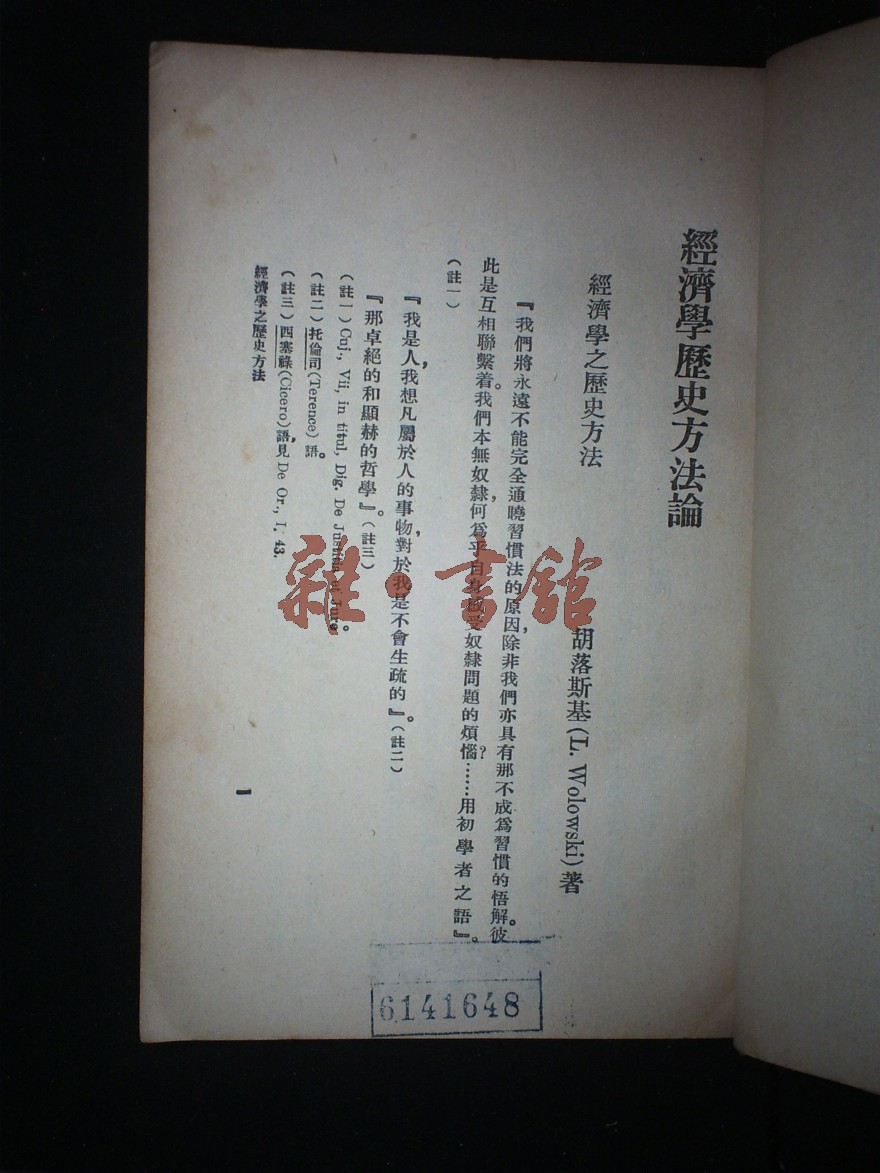 經濟學歷史方法論
經濟學之歷史方法
胡落斯基(L. Wolowski)著
『我們將永遠不能完全通曉習慣法的原因,除非我們亦具有那不成爲習慣的悟解。彼
此是互相聯繫着。我們本無奴隸,何爲乎自身感受奴隸問題的煩惱?……用初學者之語』。
(註一)
『我是人,我想凡屬於人的事物,對於我是不會生疏的』。(註二)
『那卓絕的和顯赫的哲學』。(註三)
(註一) Cuj., Vii, in titul, Dig. De Justitia et Jure。
(註二) 托倫司(Terence)語。
(註三) 西塞祿(Cicero)語,見 De Or., I, 43.
經濟學之歷史方法
一
雜·書館
6141648